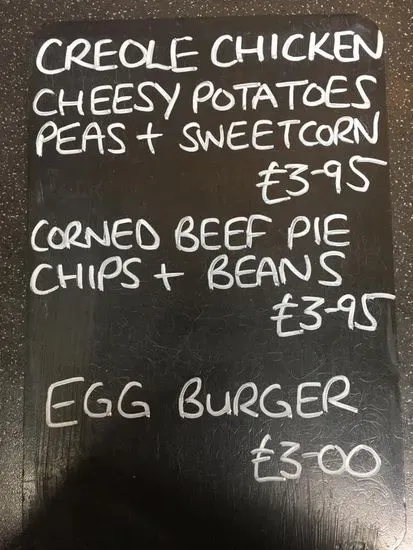 CREOLE CHICKEN
CHEESY POTATOES
PEAS + SWEETCORN
£3-95
CORNED BEEF PIE
CHIPS + BEANS
£3-95
EGG BURGER
£3-00